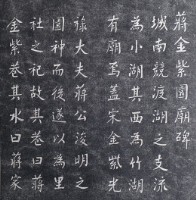 蔣金紫園廟碑
城南競渡湖之支流
為小湖其西為竹湖
有廟焉蓋宋金紫光
祿大夫蔣公浚明之
園神而後遂以為里
社之祀故其巷曰蔣
金紫巷其水曰蔣家